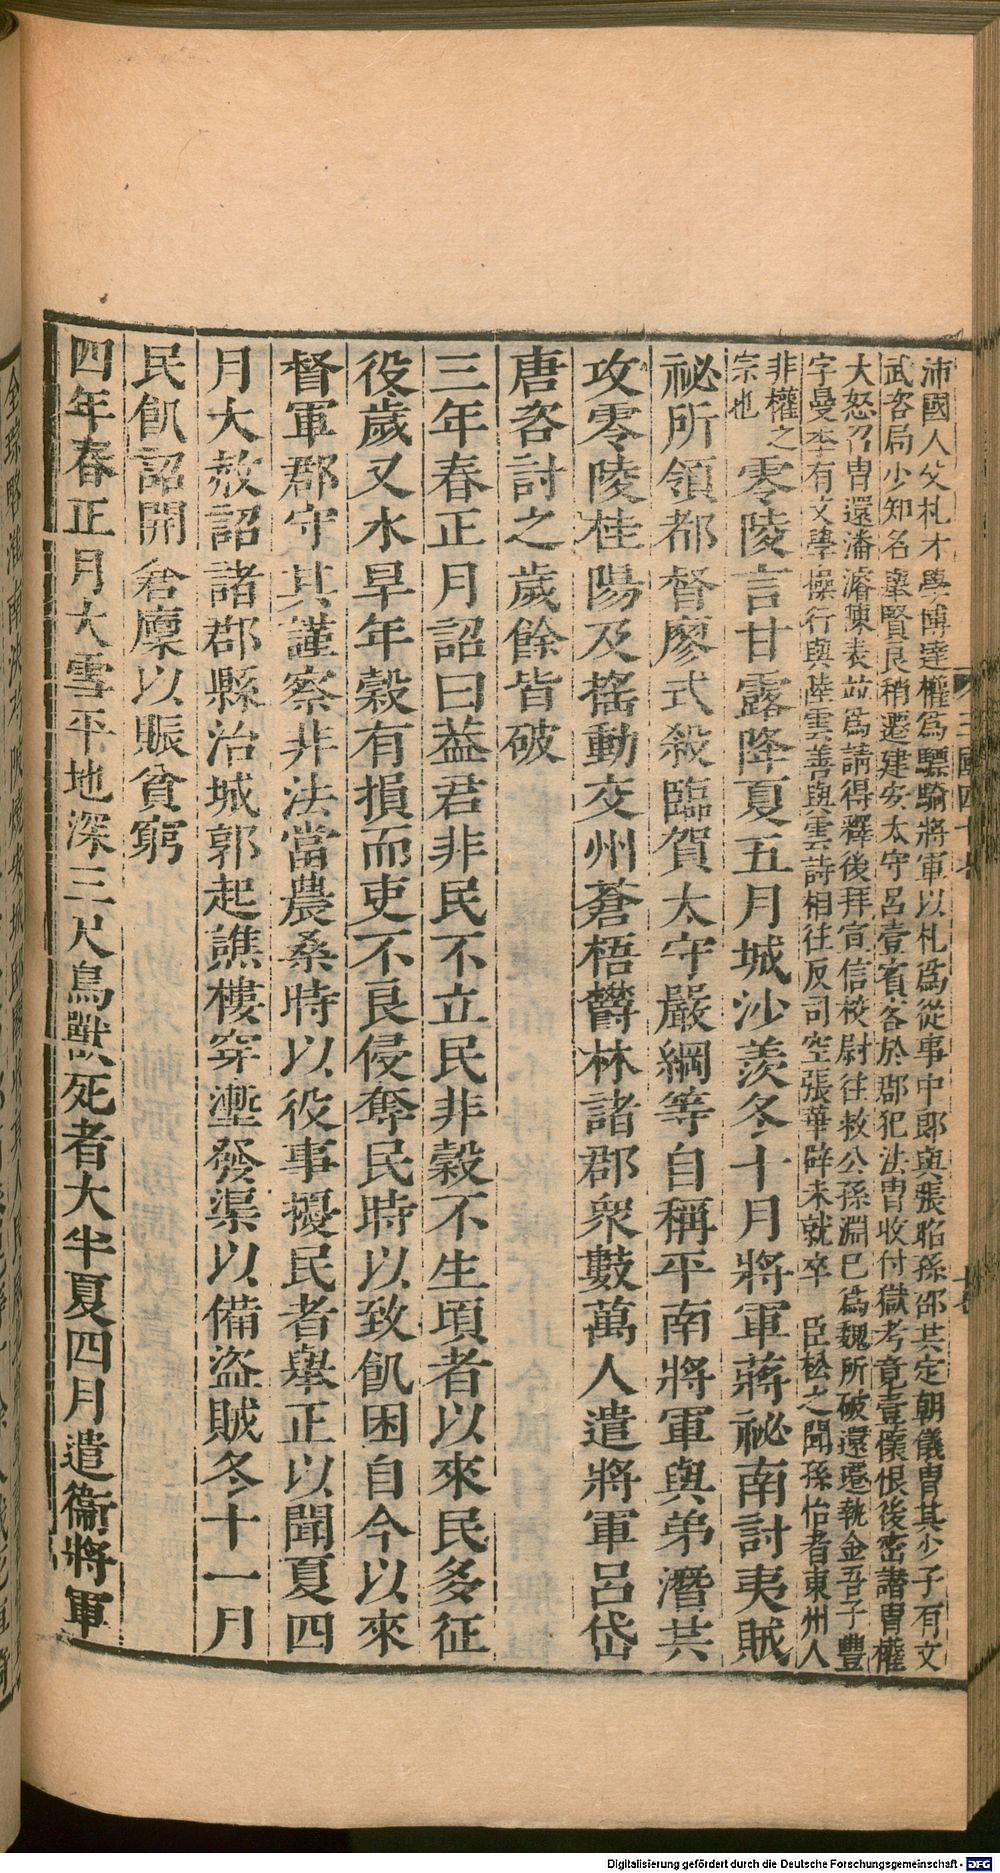 沛國人父札才學博達權爲驃騎將軍以札爲從事中郎與張昭孫邵共定朝儀冑其少子有文
武咨局少知名舉賢良稍遷建安太守呂壹賓客於郡犯法冑收付獄考竟壹懷恨後密譖冑權
大怒召冑還潘濬陳表並爲請得釋後拜宣信校尉往救公孫淵已爲魏所破還遷執金吾子豐
字曼季有文學操行與陸雲善與雲詩相往反司空張華辟未就卒 臣松之聞孫怡者東州人
非權之
宗也
零陵言甘露降夏五月城沙羨冬十月將軍蔣祕南討夷賊
祕所領都督廖式殺臨賀太守嚴綱等自稱平南將軍與弟潛共
攻零陵桂陽及搖動交州蒼梧欝林諸郡衆數萬人遣將軍呂岱
唐咨討之歲餘皆破
三年春正月詔曰葢君非民不立民非穀不生頃者以來民多征
役歲又水旱年穀有損而吏不良侵奪民時以致飢困自今以來
督軍郡守其謹察非法當農桑時以役事擾民者舉正以聞夏四
月大赦詔諸郡縣治城郭起譙樓穿塹發渠以備盜賊冬十一月
民飢詔開倉廩以賑貧窮
四年春正月大雪平地深三尺鳥獸死者大半夏四月遣衞將軍
三國四十七
Digitalisierung gefördert durch die Deutsche Forschungsgemeinschaft - DFG